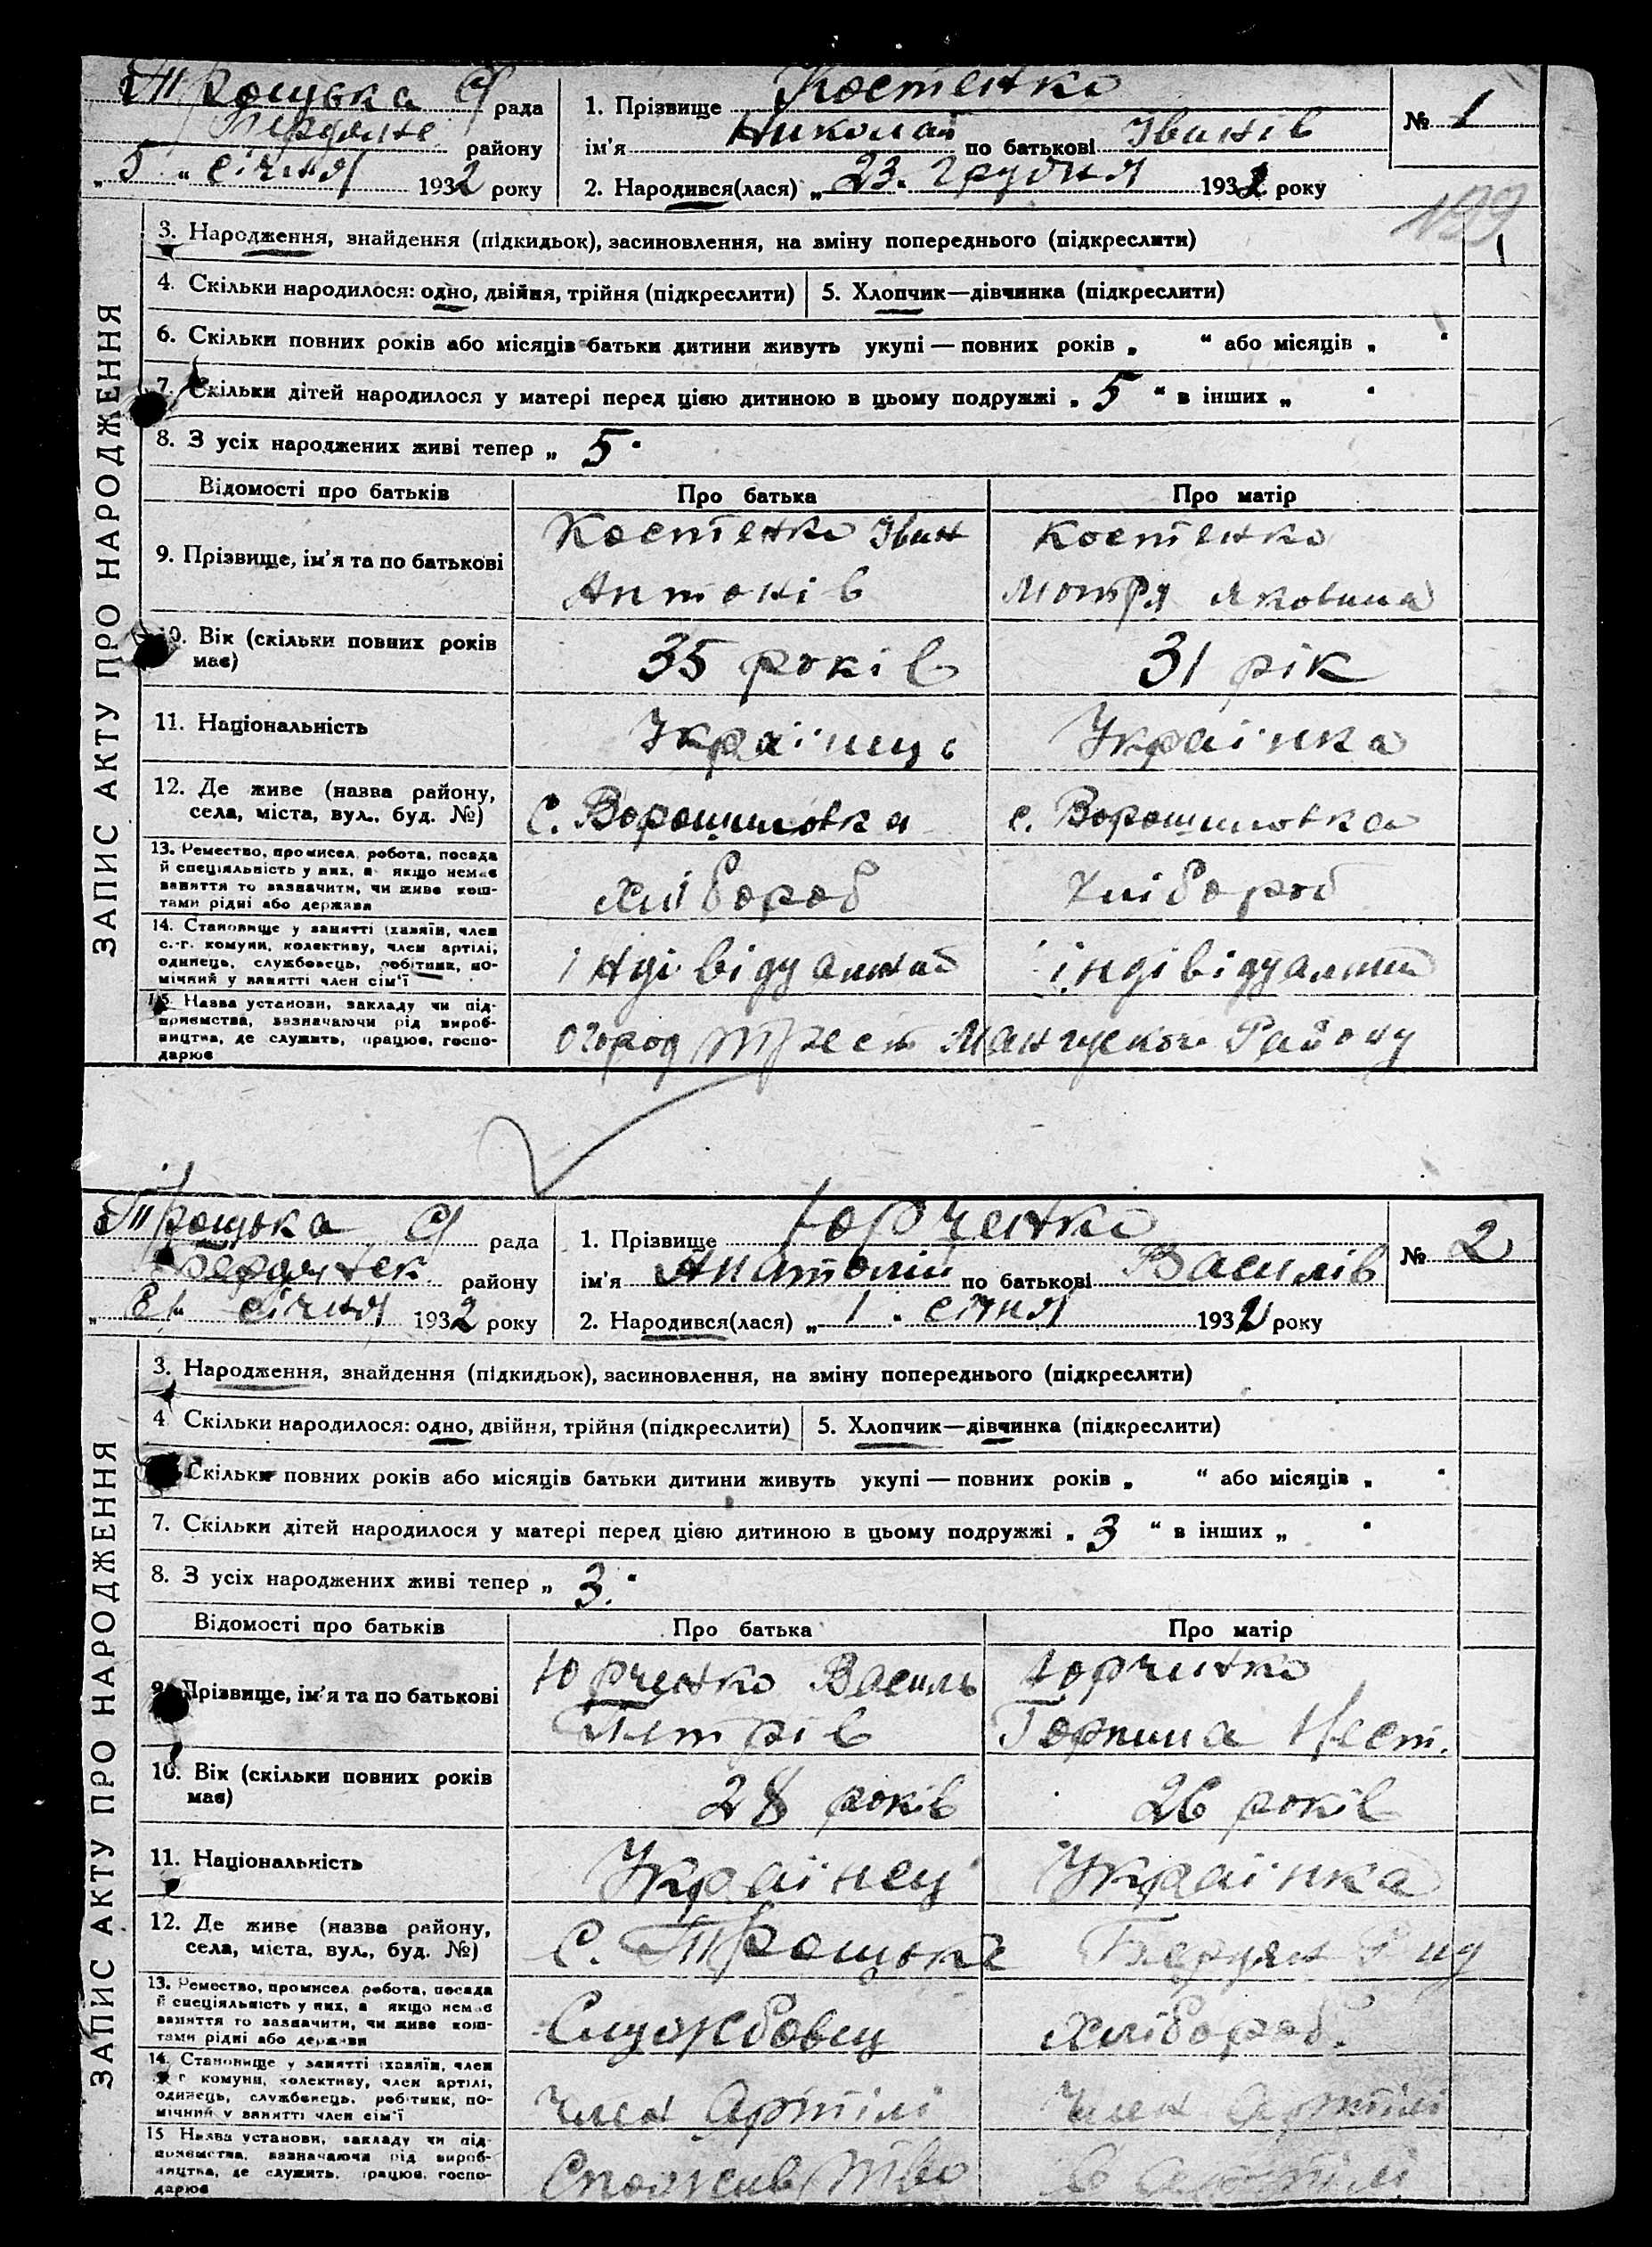 Троцька с/ рада
району
„ 5 “ січня 1932 року
1. Прізвище Костенко
ім'я Николай по батькові Іванів
2. Народився(лася) „ 23 . грудня 193 року
№ 1
199
1
ЗАПИС АКТУ ПРО НАРОДЖЕННЯ
3. Народження, знайдення (підкидьок), засиновлення, на зміну попереднього (підкреслити)
4. Скільки народилося: одно, двійня, трійня (підкреслити)
5. Хлопчик—дівчинка (підкреслити)
6. Скільки повних років або місяців батьки дитини живуть укупі — повних років „ “ або місяців „ “
7. Скільки дітей народилося у матері перед цією дитиною в цьому подружжі „ 5 “ в інших „ “
8. З усіх народжених живі тепер „ 5 “
Відомості про батьків Про батька Про матір
9. Прізвище, ім'я та по батькові
Костенко Іван
Антонів
Костенко
Мотря Яковина
10. Вік (скільки повних років
має)
35 років
31 рік
11. Національність
Українць
Українка
12. Де живе (назва району,
села, міста, вул., буд. №)
С. Ворошиловка
с. Ворошиловка
13. Ремество, промисел, робота, посада
й спеціяльність у них, а якщо немає
заняття то зазначити, чи живе кош-
тами рідні або держави
Хлібороб
Хлібороб
14. Становище у занятті (хазяїн, член
с.-г. комуни, колективу, член артілі,
одинець, службовець, робітник, по-
мічний у занятті член сім'ї
індівідуалний
індівідуалний
15. Назва установи, закладу чи під-
приємства, зазначаючи рід вироб-
ництва, де служить, працює, госпо-
дарює
огород трест Мангускої Району
Троцька с/ рада
Бердянск району
„ 8 “ січня 1932 року
1. Прізвище Юрченко
ім'я Анатолий по батькові Василів
2. Народився(лася) „ 1 . січня 1932 року
№ 2
ЗАПИС АКТУ ПРО НАРОДЖЕННЯ
3. Народження, знайдення (підкидьок), засиновлення, на зміну попереднього (підкреслити)
4. Скільки народилося: одно, двійня, трійня (підкреслити)
5. Хлопчик—дівчинка (підкреслити)
Скільки повних років або місяців батьки дитини живуть укупі — повних років „ “ або місяців „ “
7. Скільки дітей народилося у матері перед цією дитиною в цьому подружжі „ 3 “ в інших „ “
8. З усіх народжених живі тепер „ 3. “
Відомості про батьків Про батька Про матір
9. Прізвище, ім'я та по батькові
Юрченко Василь
Петрів
Юрченко
Горпина Нест.
10. Вік (скільки повних років
має)
28 років
26 років
11. Національність
Українец
Українка
12. Де живе (назва району,
села, міста, вул., буд. №)
С. Троцьке
Бердян
13. Ремество, промисел, робота, посада
й спеціяльність у них, а якщо немає
заняття то зазначити, чи живе кош-
тами рідні або держави
Службовец
Хлібороб.
14. Становище у занятті (хазяїн, член
с.-г. комуни, колективу, член артілі,
одинець, службовець, робітник, по-
мічний у занятті член сім'ї
Член Артілі
Член Артілі
15 Назва установи, закладу чи під-
приємства, зазначаючи рід вироб-
ництва, де служить, працює, госпо-
дарює
Спожив/тво
в артілі